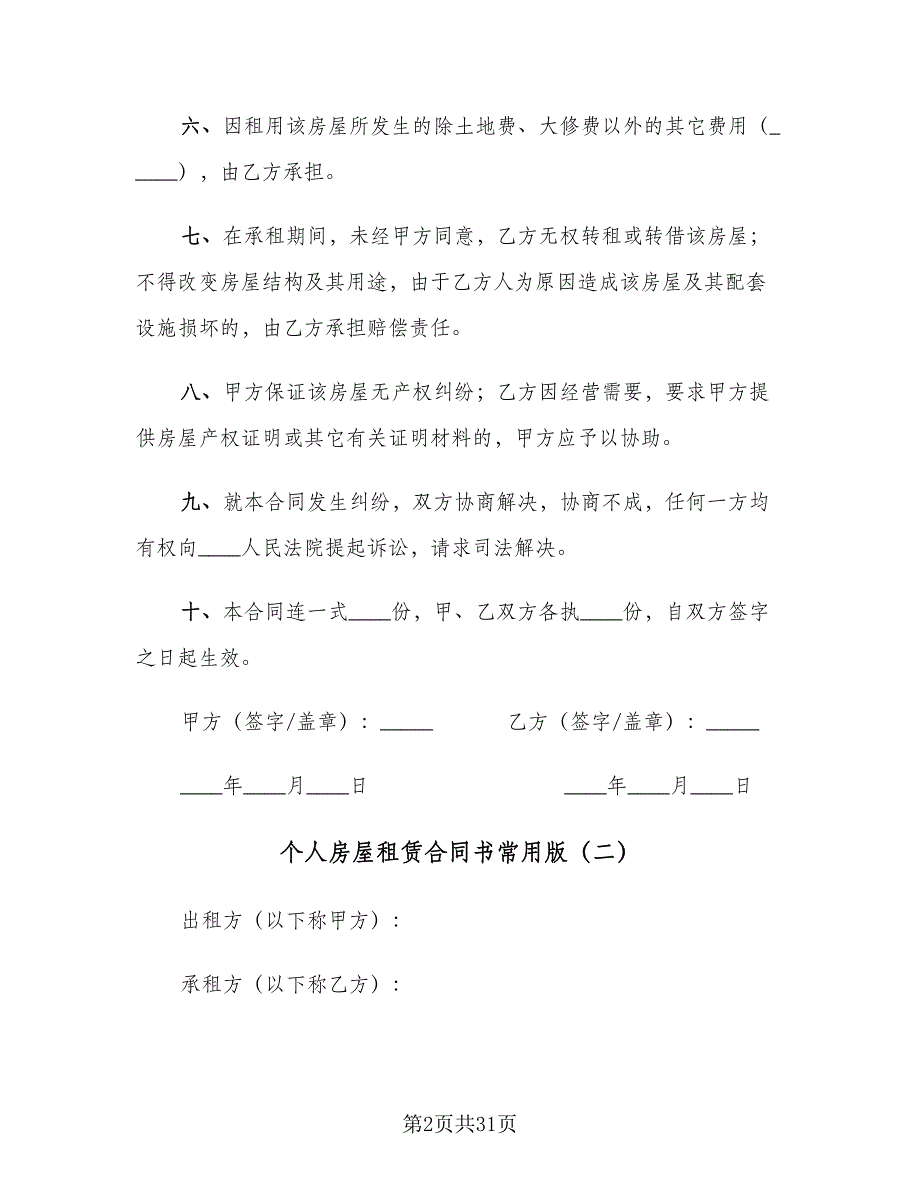 六、因租用该房屋所发生的除土地费、大修费以外的其它费用（_
____），由乙方承担。
七、在承租期间，未经甲方同意，乙方无权转租或转借该房屋；
不得改变房屋结构及其用途，由于乙方人为原因造成该房屋及其配套
设施损坏的，由乙方承担赔偿责任。
八、甲方保证该房屋无产权纠纷；乙方因经营需要，要求甲方提
供房屋产权证明或其它有关证明材料的，甲方应予以协助。
九、就本合同发生纠纷，双方协商解决，协商不成，任何一方均
有权向____人民法院提起诉讼，请求司法解决。
十、本合同连一式____份，甲、乙双方各执____份，自双方签字
之日起生效。
甲方（签字/盖章）：_____ 乙方（签字/盖章）：_____
____年____月____日 ____年____月____日
个人房屋租赁合同书常用版（二）
出租方（以下称甲方）：
承租方（以下称乙方）：
第2页共31页